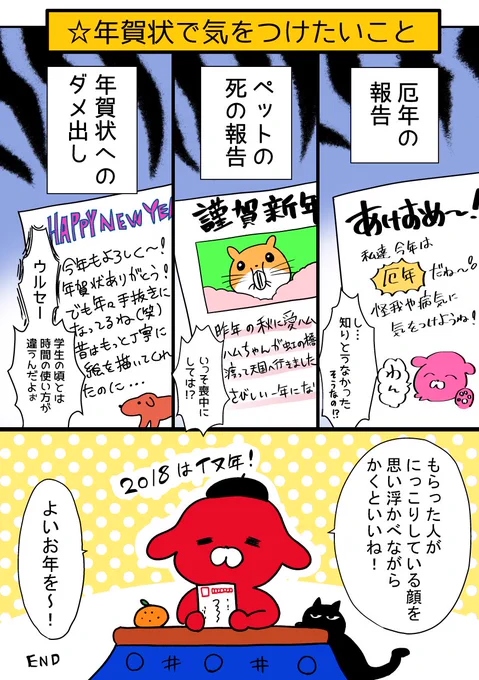 ☆年賀状で気をつけたいこと
厄年の
報告
あけおめ〜!
私達、今年は
厄年だね〜。
怪我や病気に
気をつけようね!
わん
し…
知りとうなかった
そうなの!?
ペットの
死の報告
謹賀新年
昨年の秋に愛ハム
ハムちゃんが虹の橋
渡って天国へ行きました
さびしい一年にな
いっそ喪中に
しては!?
年賀状への
ダメ出し
HAPPY NEW YEA
今年もよろしく〜!
年賀状ありがとう!
でも年々手抜きに
なってるね(笑)
昔はもっと丁寧に
絵を描いてくれ
たのに…
ウルセー
学生の頃とは
時間の使い方が
違うんだよぉ
2018はイヌ年!
もらった人が
にっこりしている顔を
思い浮かべながら
かくといいね!
よいお年を〜!
END